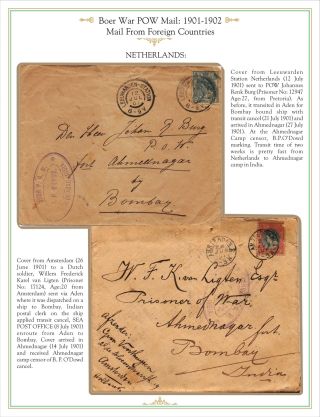 Boer War POW Mail: 1901-1902
Mail From Foreign Countries
NETHERLANDS:
Cover from Leeuwarden
Station Netherlands (12 July
1901) sent to POW Johannes
Renk Burg (Prisoner No. 12947
Age:27, from Pretoria). As
before, it transited in Aden for
Bombay bound ship with
transit cancel (21 July 1901) and
arrived in Ahmednagar (27 July
1901). At the Ahmednagar
Camp censor, B.P.O'Dowd
marking. Transit time of two
weeks is pretty fast from
Netherlands to Ahmednagar
camp in India.
LEEUWARDEN-STATION
Den Heer Johan R Burg
P. O. W.
fort Ahmednagar
by
Bombay
Cover from Amsterdam (26
June 1901) to a Dutch
soldier, Willem Frederick
Karel van Ligten (Prisoner
No. 17124, Age:20 from
Amsterdam) sent via Aden
where it was dispatched on a
ship to Bombay, Indian
postal clerk on the ship
applied transit cancel, SEA
POST OFFICE (8 July 1901)
enroute from Aden to
Bombay. Cover arrived in
Ahmednagar (14 July 1901)
and received Ahmednagar
camp censor of B. P. O'Dowd
cancel.
W. F. K. van Ligten Esqre
Prisoner of War
Ahmednagar fort
Bombay
India
Afzender:
Amsterdam
Holland